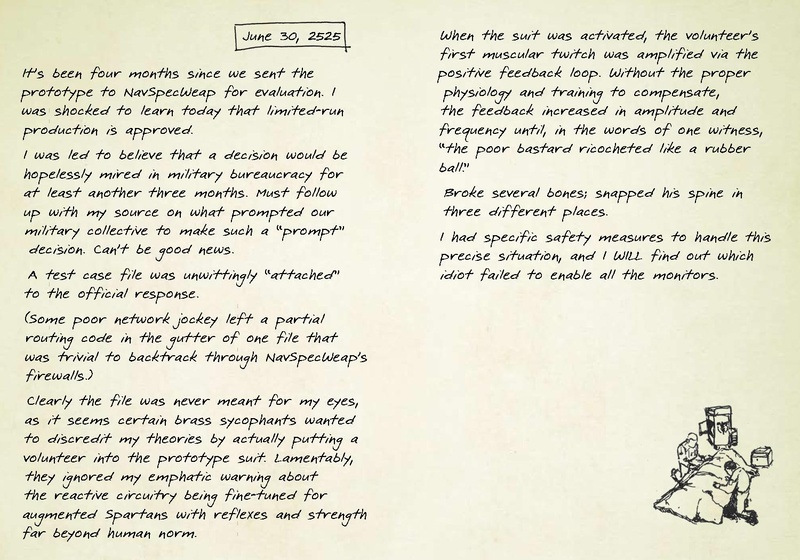 June 30, 2525
It's been four months since we sent the
prototype to NavSpecWeap for evaluation. I
was shocked to learn today that limited-run
production is approved.
I was led to believe that a decision would be
hopelessly mired in military bureaucracy for
at least another three months. Must follow
up with my source on what prompted our
military collective to make such a "prompt"
decision. Can't be good news.
A test case file was unwittingly "attached"
to the official response.
(Some poor network jockey left a partial
routing code in the gutter of one file that
was trivial to backtrack through NavSpecWeap's
firewalls.)
Clearly the file was never meant for my eyes,
as it seems certain brass sycophants wanted
to discredit my theories by actually putting a
volunteer into the prototype suit. Lamentably,
they ignored my emphatic warning about
the reactive circuitry being fine-tuned for
augmented Spartans with reflexes and strength
far beyond human norm.
When the suit was activated, the volunteer's
first muscular twitch was amplified via the
positive feedback loop. Without the proper
physiology and training to compensate,
the feedback increased in amplitude and
frequency until, in the words of one witness,
"the poor bastard ricocheted like a rubber
ball."
Broke several bones; snapped his spine in
three different places.
I had specific safety measures to handle this
precise situation, and I WILL find out which
idiot failed to enable all the monitors.